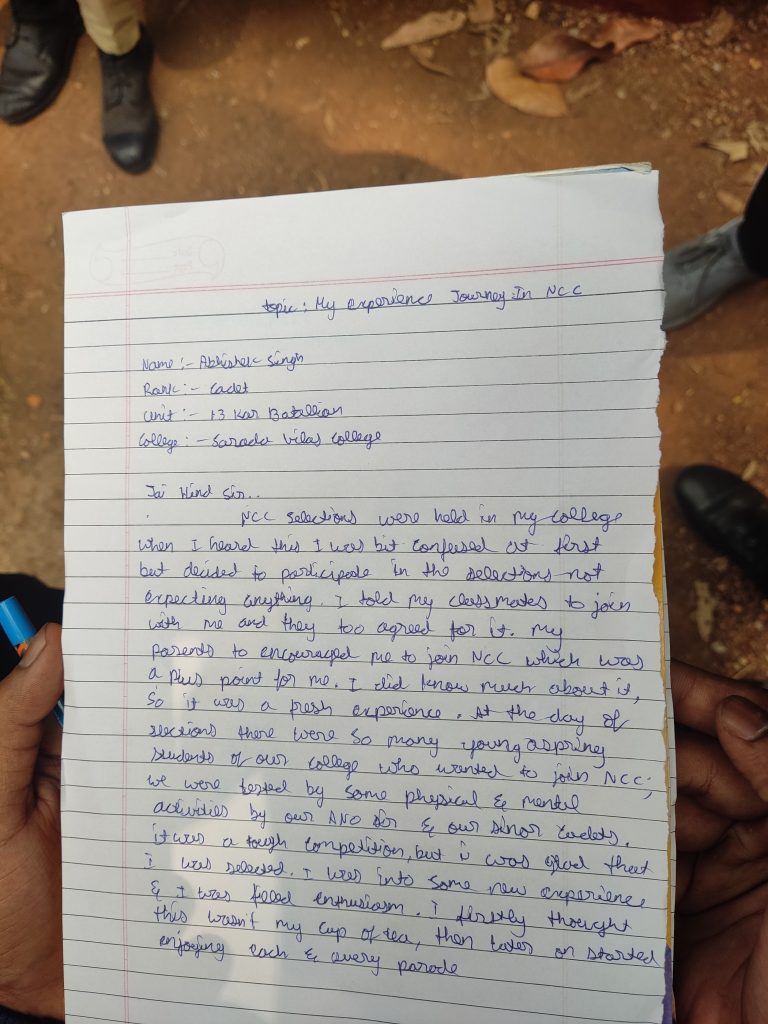 topic: My experience Journey In NCC
Name :- Abhishek Singh
Rank :- Cadet
Unit :- 13 Kar Batallian
College :- Sarada Vilas College
Jai Hind Sir..
NCC selections were held in my college
when I heard this I was bit confused at first
but decided to participate in the selections not
expecting anything. I told my classmates to join
with me and they too agreed for it. My
parents to encouraged me to join NCC which was
a plus point for me. I did know much about it,
so it was a fresh experience. At the day of
slections there were so many young aspring
students of our college who wanted to join NCC;
we were tested by some physical & mental
activities by our ANO sir & our sinor cadets.
it was a tough competition, but i was glad that
I was selected. I was into some new experience
& I was filled enthusiasm. I firstly thought
this wasn't my cup of tea, then later on started
enjoying each & every parade